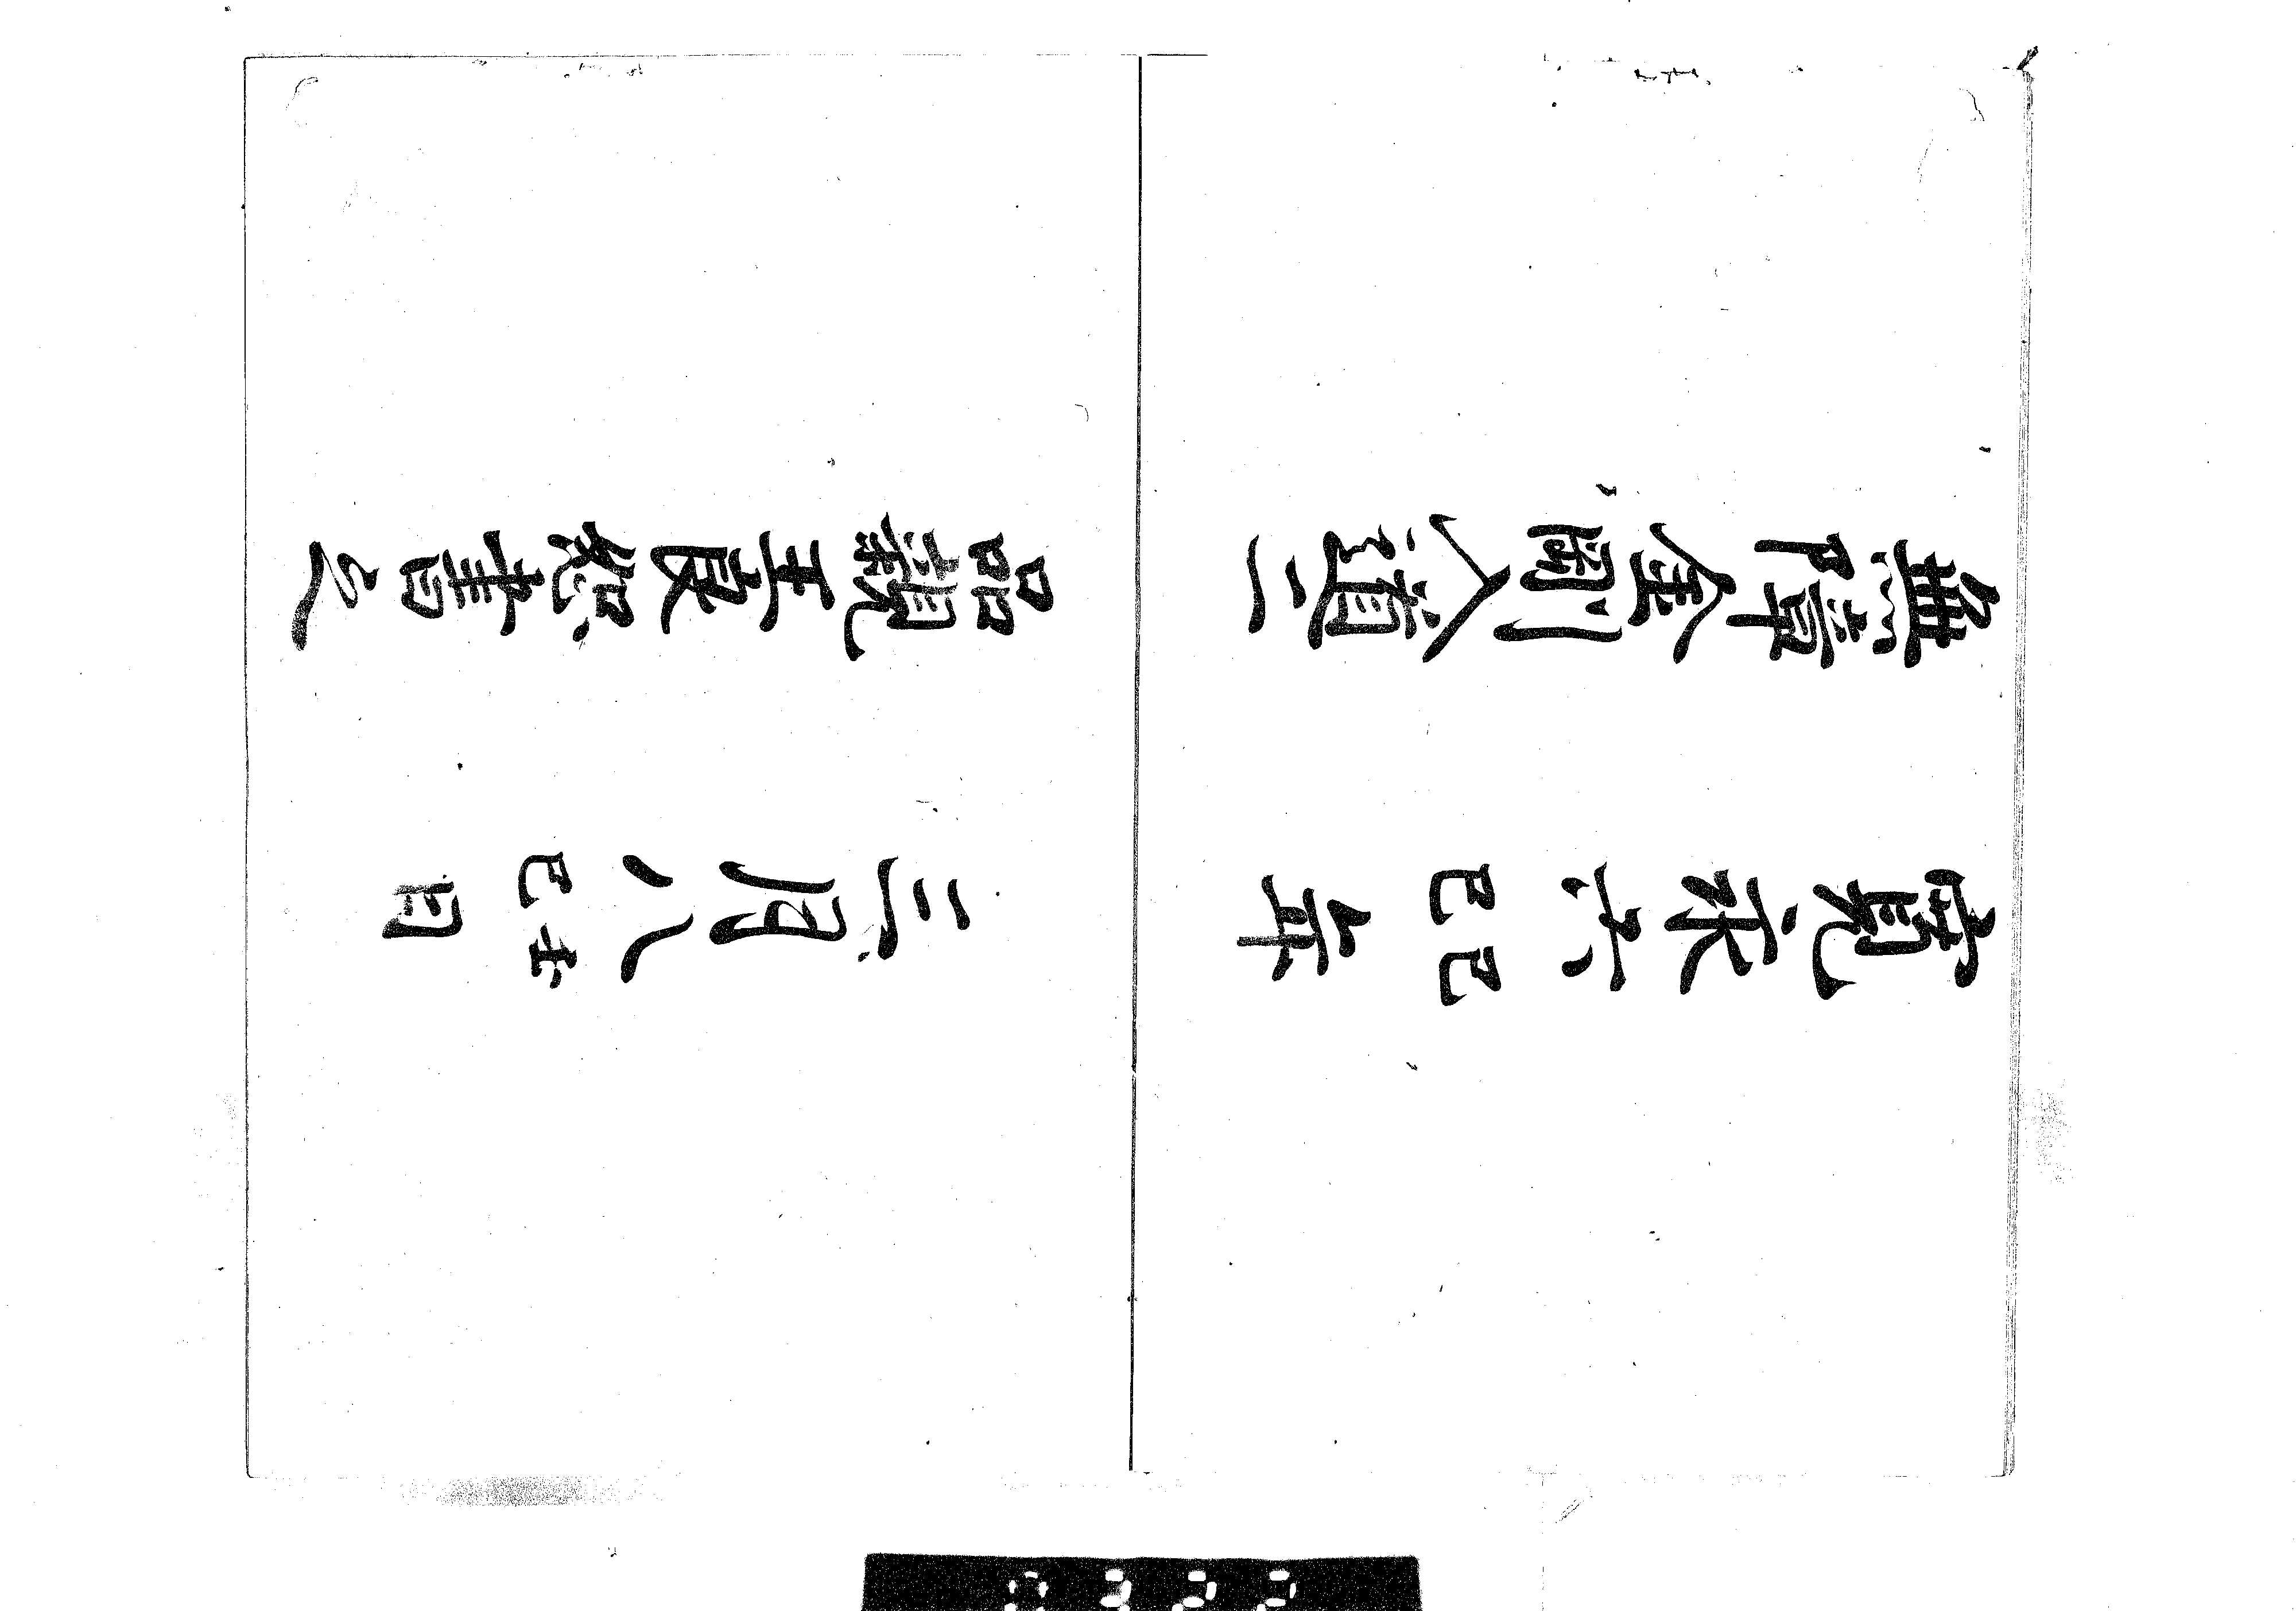 寛永六己巳年三月八日
無障金剛入道二品親王良恕書之